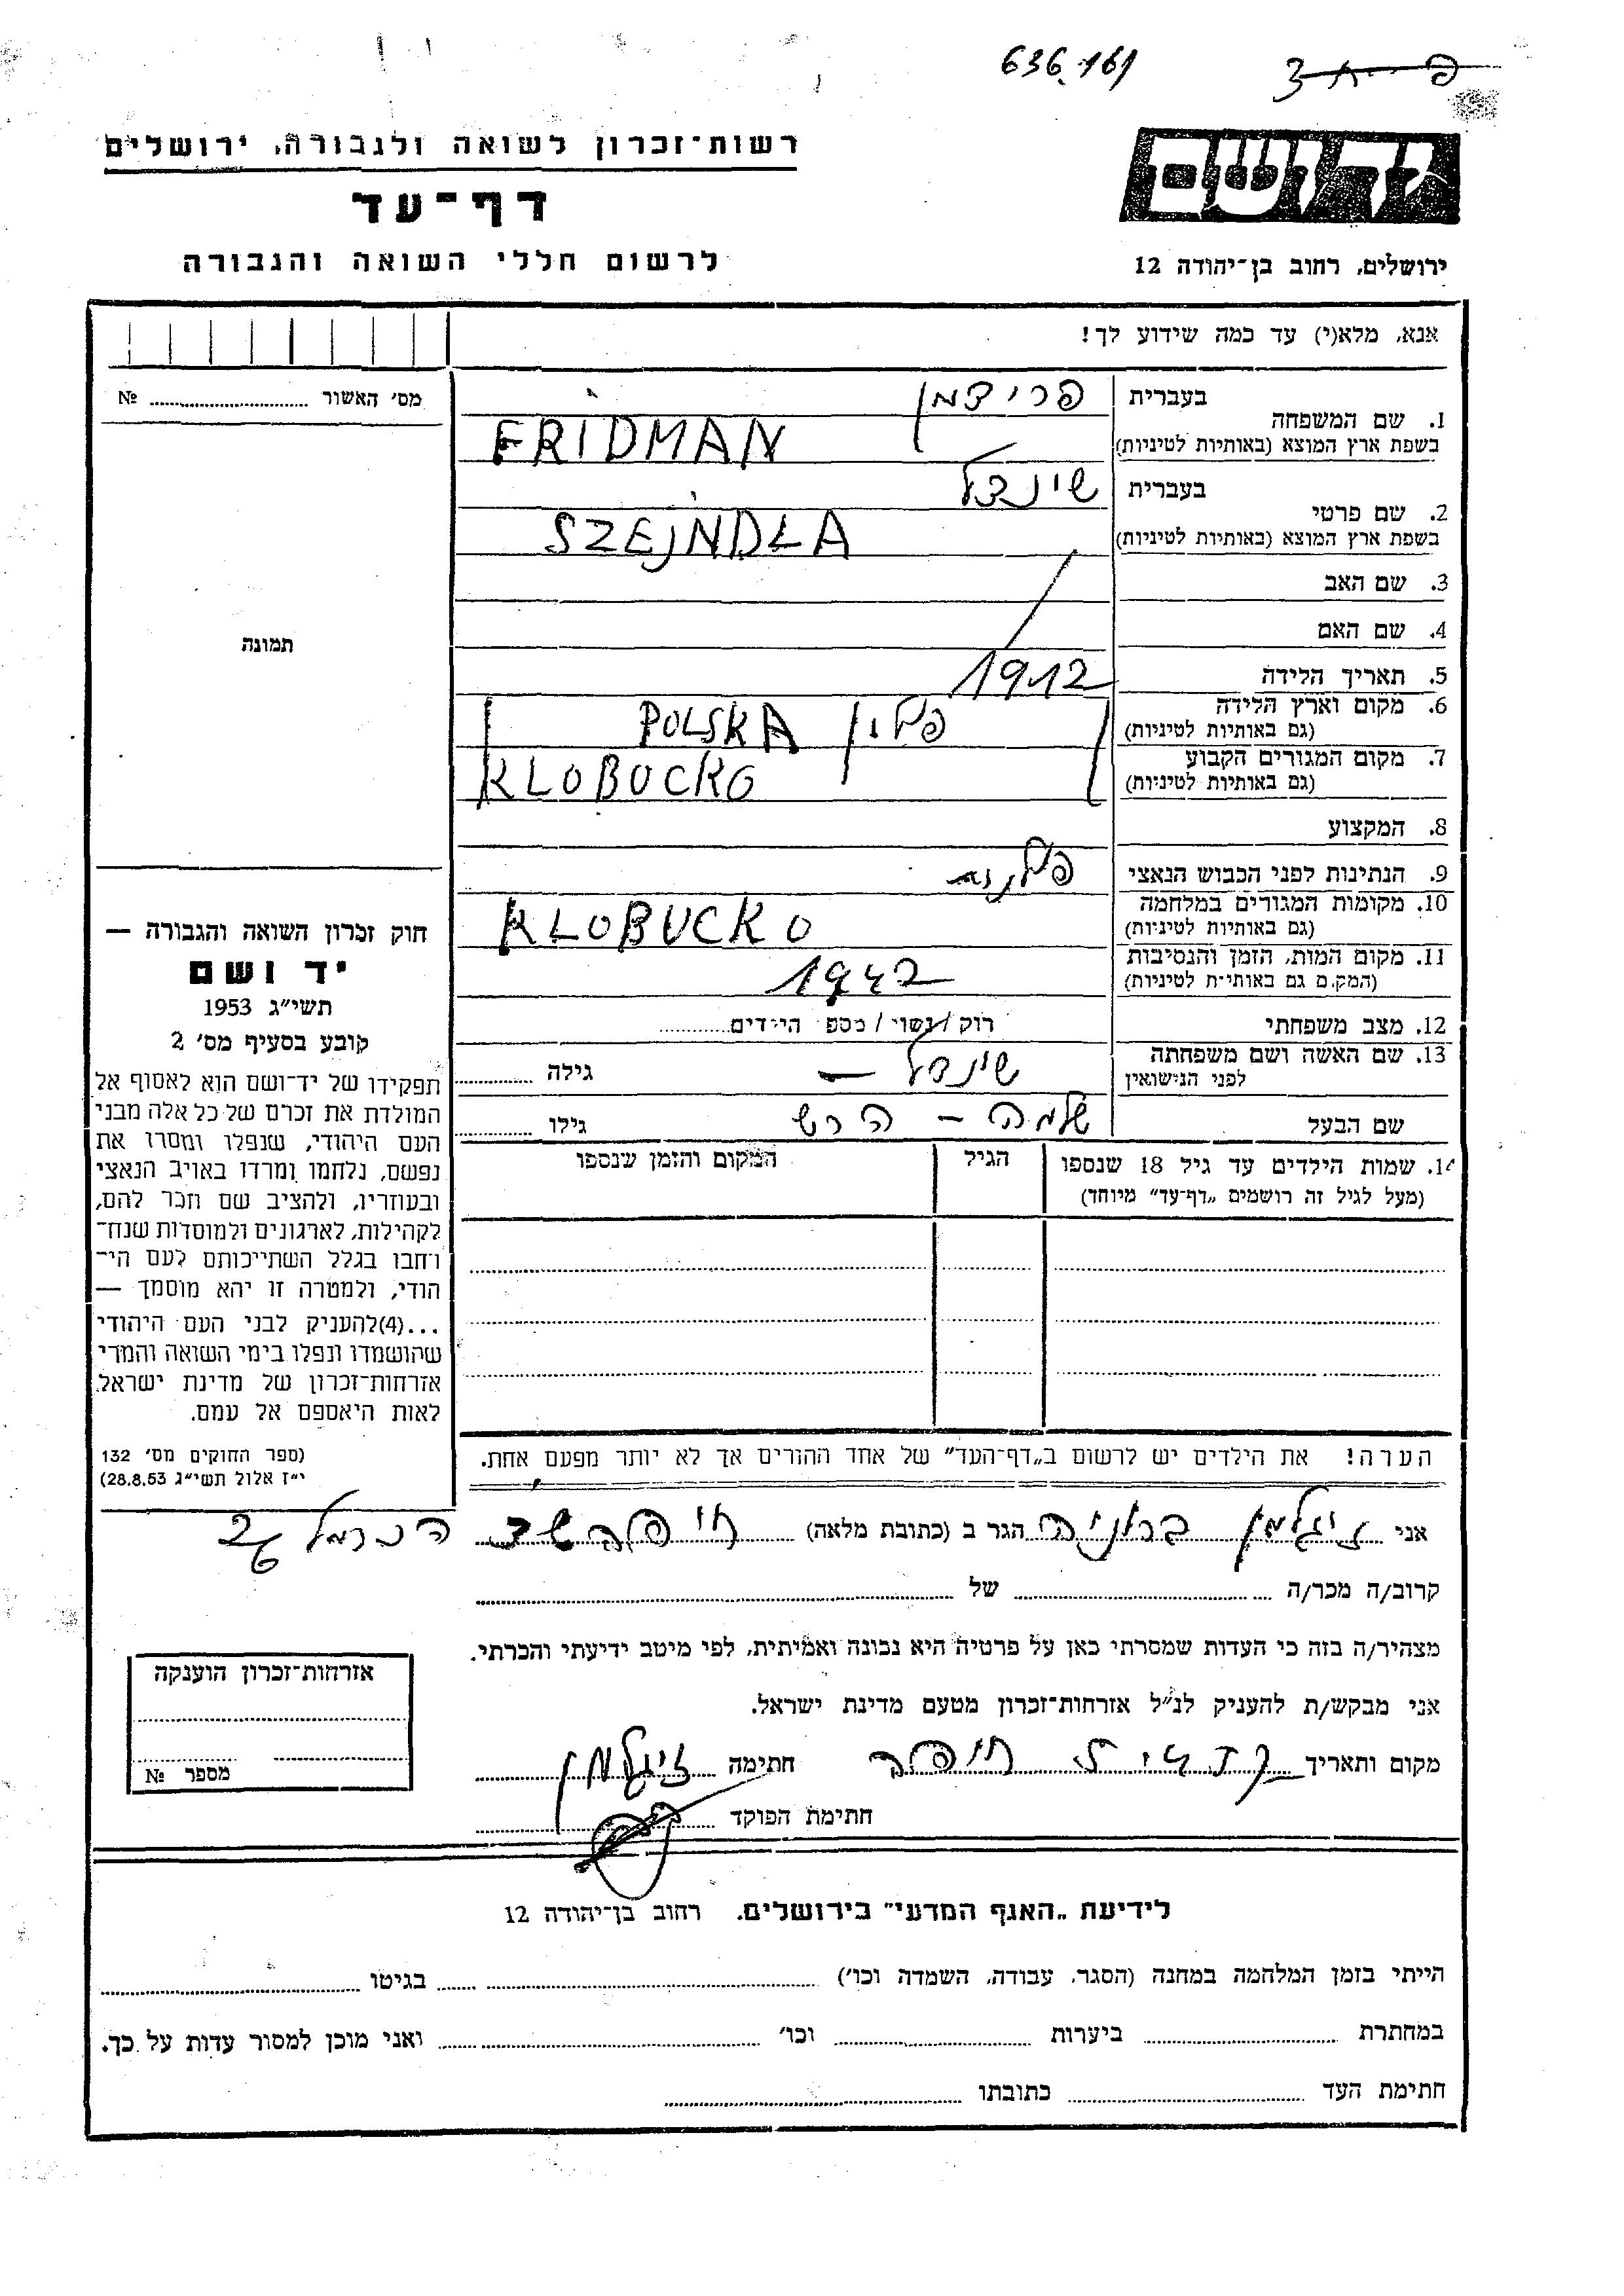 636.161
רשות־זכרון לשואה ולגבורה, ירושלים
דף־עד
לרשום חללי השואה והגבורה
ידושם
ירושלים, רחוב בן־יהודה 12
אנא, מלא(י) עד כמה שידוע לך!
מס' האשור № 
תמונה
1. שם המשפחה
בעברית פרידמן
בשפת ארץ המוצא (באותיות לטיניות) FRIDMAN
2. שם פרטי
בעברית שינדל
בשפת ארץ המוצא (באותיות לטיניות) SZEJNDLA
3. שם האב
4. שם האם
5. תאריך הלידה 1912
6. מקום וארץ הלידה
(גם באותיות לטיניות) פולין POLSKA
7. מקום המגורים הקבוע
(גם באותיות לטיניות) KLOBUCKO
8. המקצוע
9. הנתינות לפני הכבוש הנאצי
10. מקומות המגורים במלחמה
(גם באותיות לטיניות) KLOBUCKO
11. מקום המות, הזמן והנסיבות
(המקום גם באותיות לטיניות) 1942
12. מצב משפחתי רוק/נשוי/מספ הילדים
13. שם האשה ושם משפחתה
לפני הנישואין שינדל — גילה
שם הבעל שלמה – הרש גילו
14. שמות הילדים עד גיל 18 שנספו
(מעל לגיל זה רושמים „דף־עד” מיוחד)
הגיל
המקום והזמן שנספו
חוק זכרון השואה והגבורה —
יד ושם
תשי״ג 1953
קובע בסעיף מס' 2
תפקידו של יד־ושם הוא לאסוף אל
המולדת את זכרם של כל אלה מבני
העם היהודי, שנפלו ומסרו את
נפשם, נלחמו ומרדו באויב הנאצי
ובעוזריו, ולהציב שם וזכר להם,
לקהילות, לארגונים ולמוסדות שנח־
רחבו בגלל השתייכותם לעם הי־
הודי, ולמטרה זו יהא מוסמך —
...(4)להעניק לבני העם היהודי
שהושמדו ונפלו בימי השואה והמרי
אזרחות־זכרון של מדינת ישראל,
לאות היאספם אל עמם.
(ספר החוקים מס' 132
י״ז אלול תשי״ג 28.8.53)
הערה! את הילדים יש לרשום ב„דף־העד” של אחד ההורים אך לא יותר מפעם אחת.
אני זיגלמן ברוניה הגר ב (כתובת מלאה) חיפה הכרמל
קרוב/ה מכר/ה של
מצהיר/ה בזה כי העדות שמסרתי כאן על פרטיה היא נכונה ואמיתית, לפי מיטב ידיעתי והכרתי.
אני מבקש/ת להעניק לנ״ל אזרחות־זכרון מטעם מדינת ישראל.
מקום ותאריך חיפה חתימה זיגלמן
חתימת הפוקד
אזרחות־זכרון הוענקה
מספר №
לידיעת „האגף המדעי” בירושלים. רחוב בן־יהודה 12
הייתי בזמן המלחמה במחנה (הסגר, עבודה, השמדה וכו') בגיטו
במחתרת ביערות וכו' ואני מוכן למסור עדות על כך.
חתימת העד כתובתו